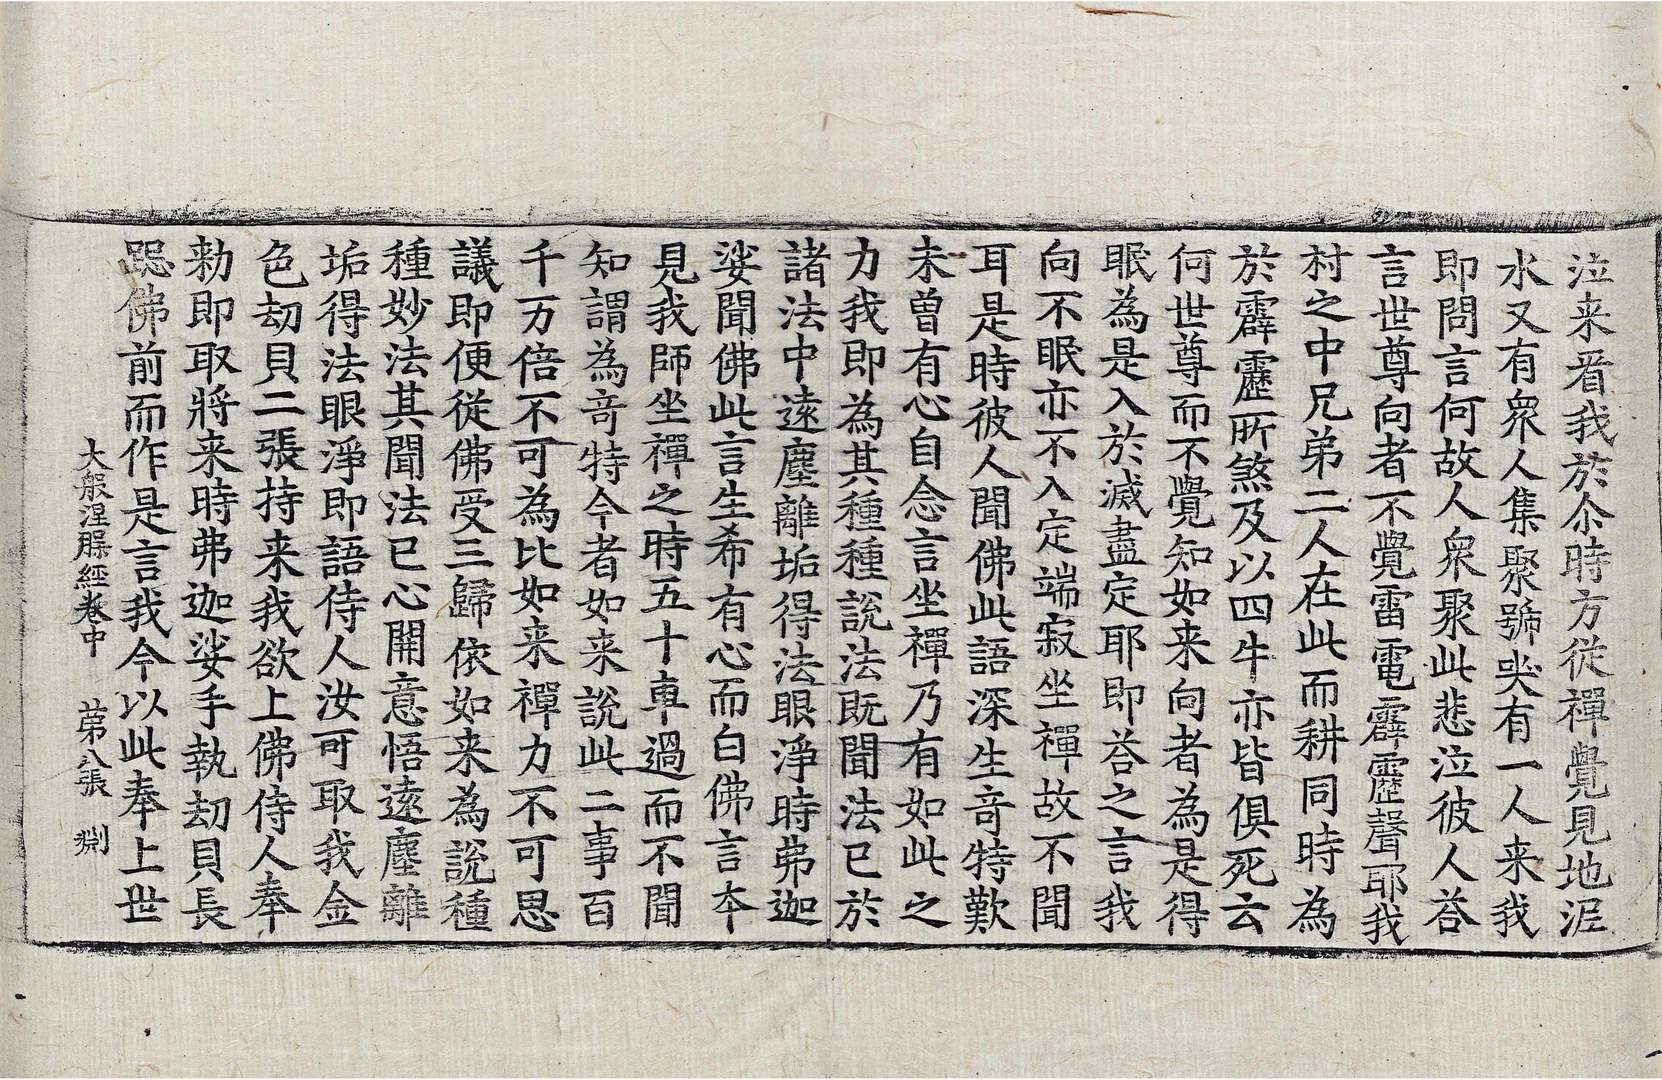 泣来㸔我於尒時方從禪覺見地泥
水又有衆人集聚號哭有一人来我
即問言何故人衆聚此悲泣彼人荅
言世尊向者不覺雷電霹靂聲耶我
村之中兄弟二人在此而耕同時為
於霹靂所煞及以四牛亦皆俱死云
何世尊而不覺知如来向者為是得
眠為是入於滅盡定耶即荅之言我
向不眠亦不入定端寂坐禪故不聞
耳是時彼人聞佛此語深生竒特歎
未曾有心自念言坐禪乃有如此之
力我即為其種種說法既聞法已於
諸法中遠塵離垢得法眼淨時弗迦
娑聞佛此言生希有心而白佛言本
見我師坐禪之時五十車過而不聞
知謂為竒特今者如来說此二事百
千万倍不可為比如来禪力不可思
議即便從佛受三歸依如来為說種
種妙法其聞法已心開意悟遠塵離
垢得法眼淨即語侍人汝可取我金
色劫貝二張持来我欲上佛侍人奉
勑即取將来時弗迦娑手執劫貝長
跽佛前而作是言我今以此奉上世
大般涅槃經卷中 苐八張